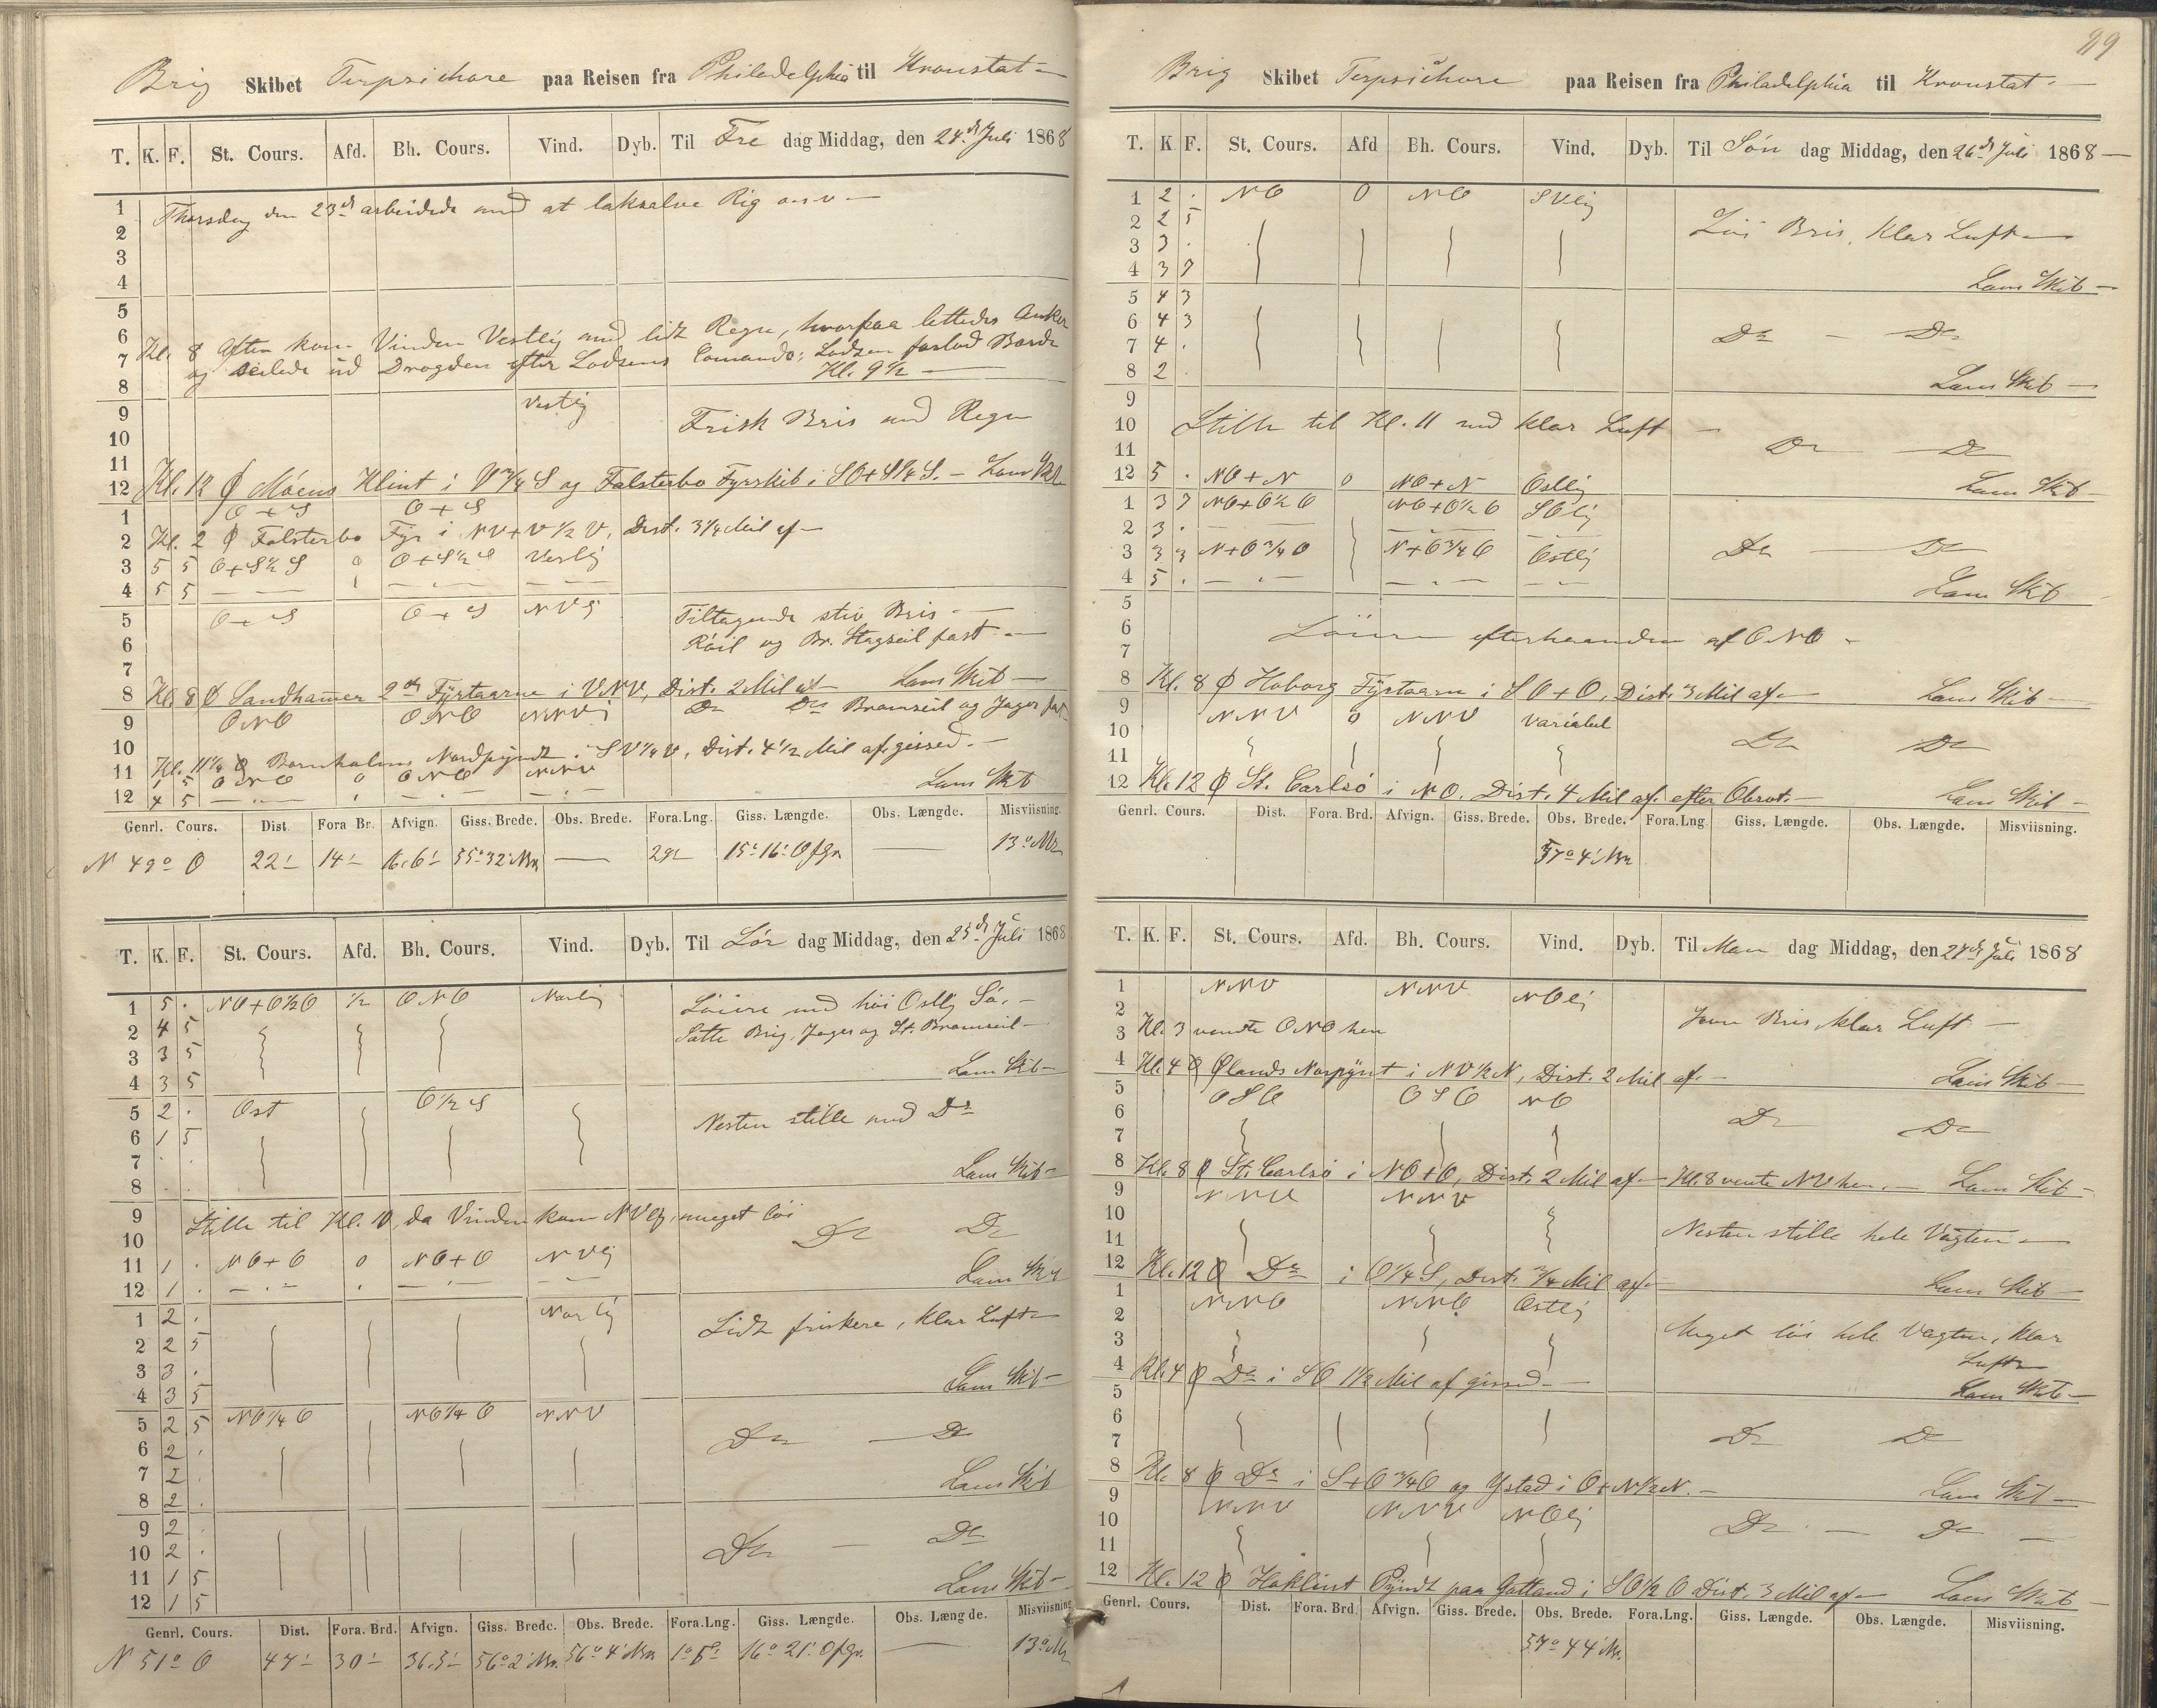 Brig Skibet Terpsichore paa Reisen fra Philadelphia til Kronstat
T. K. F. St. Cours. Afd. Bh. Cours. Vind. Dyb. Til Fre dag Middag, den 24de Juli 1868
1 Thorsdag den 23de arbeidede med at laksalve Rig o.s.v.
2
3
4
5
6 Kl. 8 Aften kom Vinden Vestlig med lidt Regn, hvorpaa lettedes Anker
7 og seilede ud Drogden efter Lodsens Comando; Lodsen forlod Borde
8 Kl. 9 1/2
9 Vestlig Frisk Bris med Regn
10
11
12 Kl. 12 Ø Möens Klint i V 3/4 S og Falsterbo Fyrskib i SO+S 1/4 S. Lens Skib
1 O+S O+S
2 Kl. 2 Ø Falsterbo Fyr i NV+V 1/2 V, Dist. 3/4 Mil af
3 5 5 O+S 1/2 S 0 O+S 1/2 S Vestlig
4 5 5
5 O+S O+S NVlig Tiltagende stiv Bris
6 Röil og Br. Stagseil fast
7
8 Kl. 8 Ø Sandhammer 2de Fyrtaarne i VNV, Dist. 2 Mil af Lens Skib
9 ONO ONO NNVlig Do Do Bramseil og Jager fast
10
11 Kl. 11 1/4 Ø Bornholms Nordpyndt i SV 1/4 V, Dist. 4 1/2 Mil af gisset.
1 5 ONO 0 ONO NNV
12 4 5 Lens Skib
Genrl. Cours. Dist. Fora Br. Afvign. Giss. Brede. Obs. Brede. Fora.Lng. Giss. Længde. Obs. Længde. Misviisning.
N 49° O 22' 14' 16,6' 55° 32' Nr. 29' 15° 16' O fgr. 13° Nr.
T. K. F. St. Cours. Afd. Bh. Cours. Vind. Dyb. Til Lör dag Middag, den 25de Juli 1868
1 5 . NO+O 1/2 O 1/2 ONO Norlig Löiere med höi Ostlig Sö.
2 4 5 Satte Brig, Jager og St. Bramseil
3 3 5
4 3 5 Lens Skib
5 2 . Ost O 1/2 S Nesten stille med Do
6 1 5
7 . .
8 . . Lens Skib
9 Stille til Kl. 10, da Vinden kom NVlig, meget löi
10 Do Do
11 1 . NO+O 0 NO+O NVlig
12 1 . Lens Skib
1 2 . Norlig Lidt friskere, klar Luft
2 2 5
3 3 .
4 3 5 Lens Skib
5 2 5 NO 1/4 O NO 1/4 O NNV
6 2 . Do Do
7 2 .
8 2 . Lens Skib
9 2 .
10 2 . Do Do
11 1 5
12 1 5 Lens Skib
Genrl. Cours. Dist. Fora. Brd. Afvign. Giss. Brede. Obs. Brede. Fora.Lng. Giss. Længde. Obs. Længde. Misviisning
N 51° O 47' 30' 36,5' 56° 2' Nr. 56° 4' Nr. 1° 5' 16° 21' O fgr. 13° Nr
89
Brig Skibet Terpsichore paa Reisen fra Philadelphia til Kronstat
T. K F. St. Cours. Afd Bh. Cours. Vind. Dyb. Til Sön dag Middag, den 26de Juli 1868
1 2 . NO 0 NO SVlig
2 2 5 Löi Bris, klar Luft
3 3 .
4 3 7 Lens Skib
5 4 3
6 4 3 Do Do
7 4 .
8 2 . Lens Skib
9
10 Stille til Kl. 11 med klar Luft
11 Do Do
12 5 . NO+N 0 NO+N Ostlig Lens Skib
1 3 7 NO+O 1/2 O NO+O 1/2 O SOlig
2 3 .
3 3 3 N+O 3/4 O N+O 3/4 O Ostlig Do Do
4 5 . Lens Skib
5
6 Löiere efterhaanden af ONO
7
8 Kl. 8 Ø Hoborg Fyrtaarn i SO+O, Dist. 3 Mil af Lens Skib
9 NNV 0 NNV Variabel
10 Do Do
11
12 Kl. 12 Ø St. Carlsö i NO. Dist. 4 Mil af efter Obsvt. Lens Skib
Genrl. Cours. Dist. Fora. Brd. Afvign. Giss. Brede. Obs. Brede. Fora.Lng Giss. Længde. Obs. Længde. Misviisning.
57° 4' Nr.
T. K. F. St. Cours. Afd. Bh. Cours. Vind. Dyb. Til Man dag Middag, den 27de Juli 1868
1 NNV NNV NOlig
2 Jevn Bris klar Luft
3 Kl. 3 vendte ONO hen
4 Kl. 4 Ø Ølands Norpynt i NV 1/2 N, Dist. 2 Mil af. Lens Skib
5 OSO OSO NO
6 Do Do
7
8 Kl. 8 Ø St. Carlsö i NO+O, Dist. 2 Mil af Kl. 8 vente NV hen. Lens Skib
9 NNV NNV
10 Nesten stille hele Vagten
11
12 Kl. 12 Ø Do i O 1/4 S, Dist. 3/4 Mil af Lens Skib
1 NNO NNO Ostlig
2 Meget löi hele Vagten, klar
3 Luft
4 Kl. 4 Ø Do i SO 1 1/2 Mil af gisset Lens Skib
5
6
7 Do Do
8 Kl. 8 Ø Do i S+O 3/4 O og Ystad i O+N 1/2 N. Lens Skib
9 NNV NNV NOlig
10 Do Do
11
12 Kl. 12 Ø Hoklint Pyndt paa Gottland i SO 1/2 O Dist. 3 Mil af Lens Skib
Genrl. Cours. Dist. Fora. Brd Afvign. Giss. Brede. Obs. Brede. Fora.Lng. Giss. Længde. Obs. Længde. Misviisning.
57° 44' Nr.